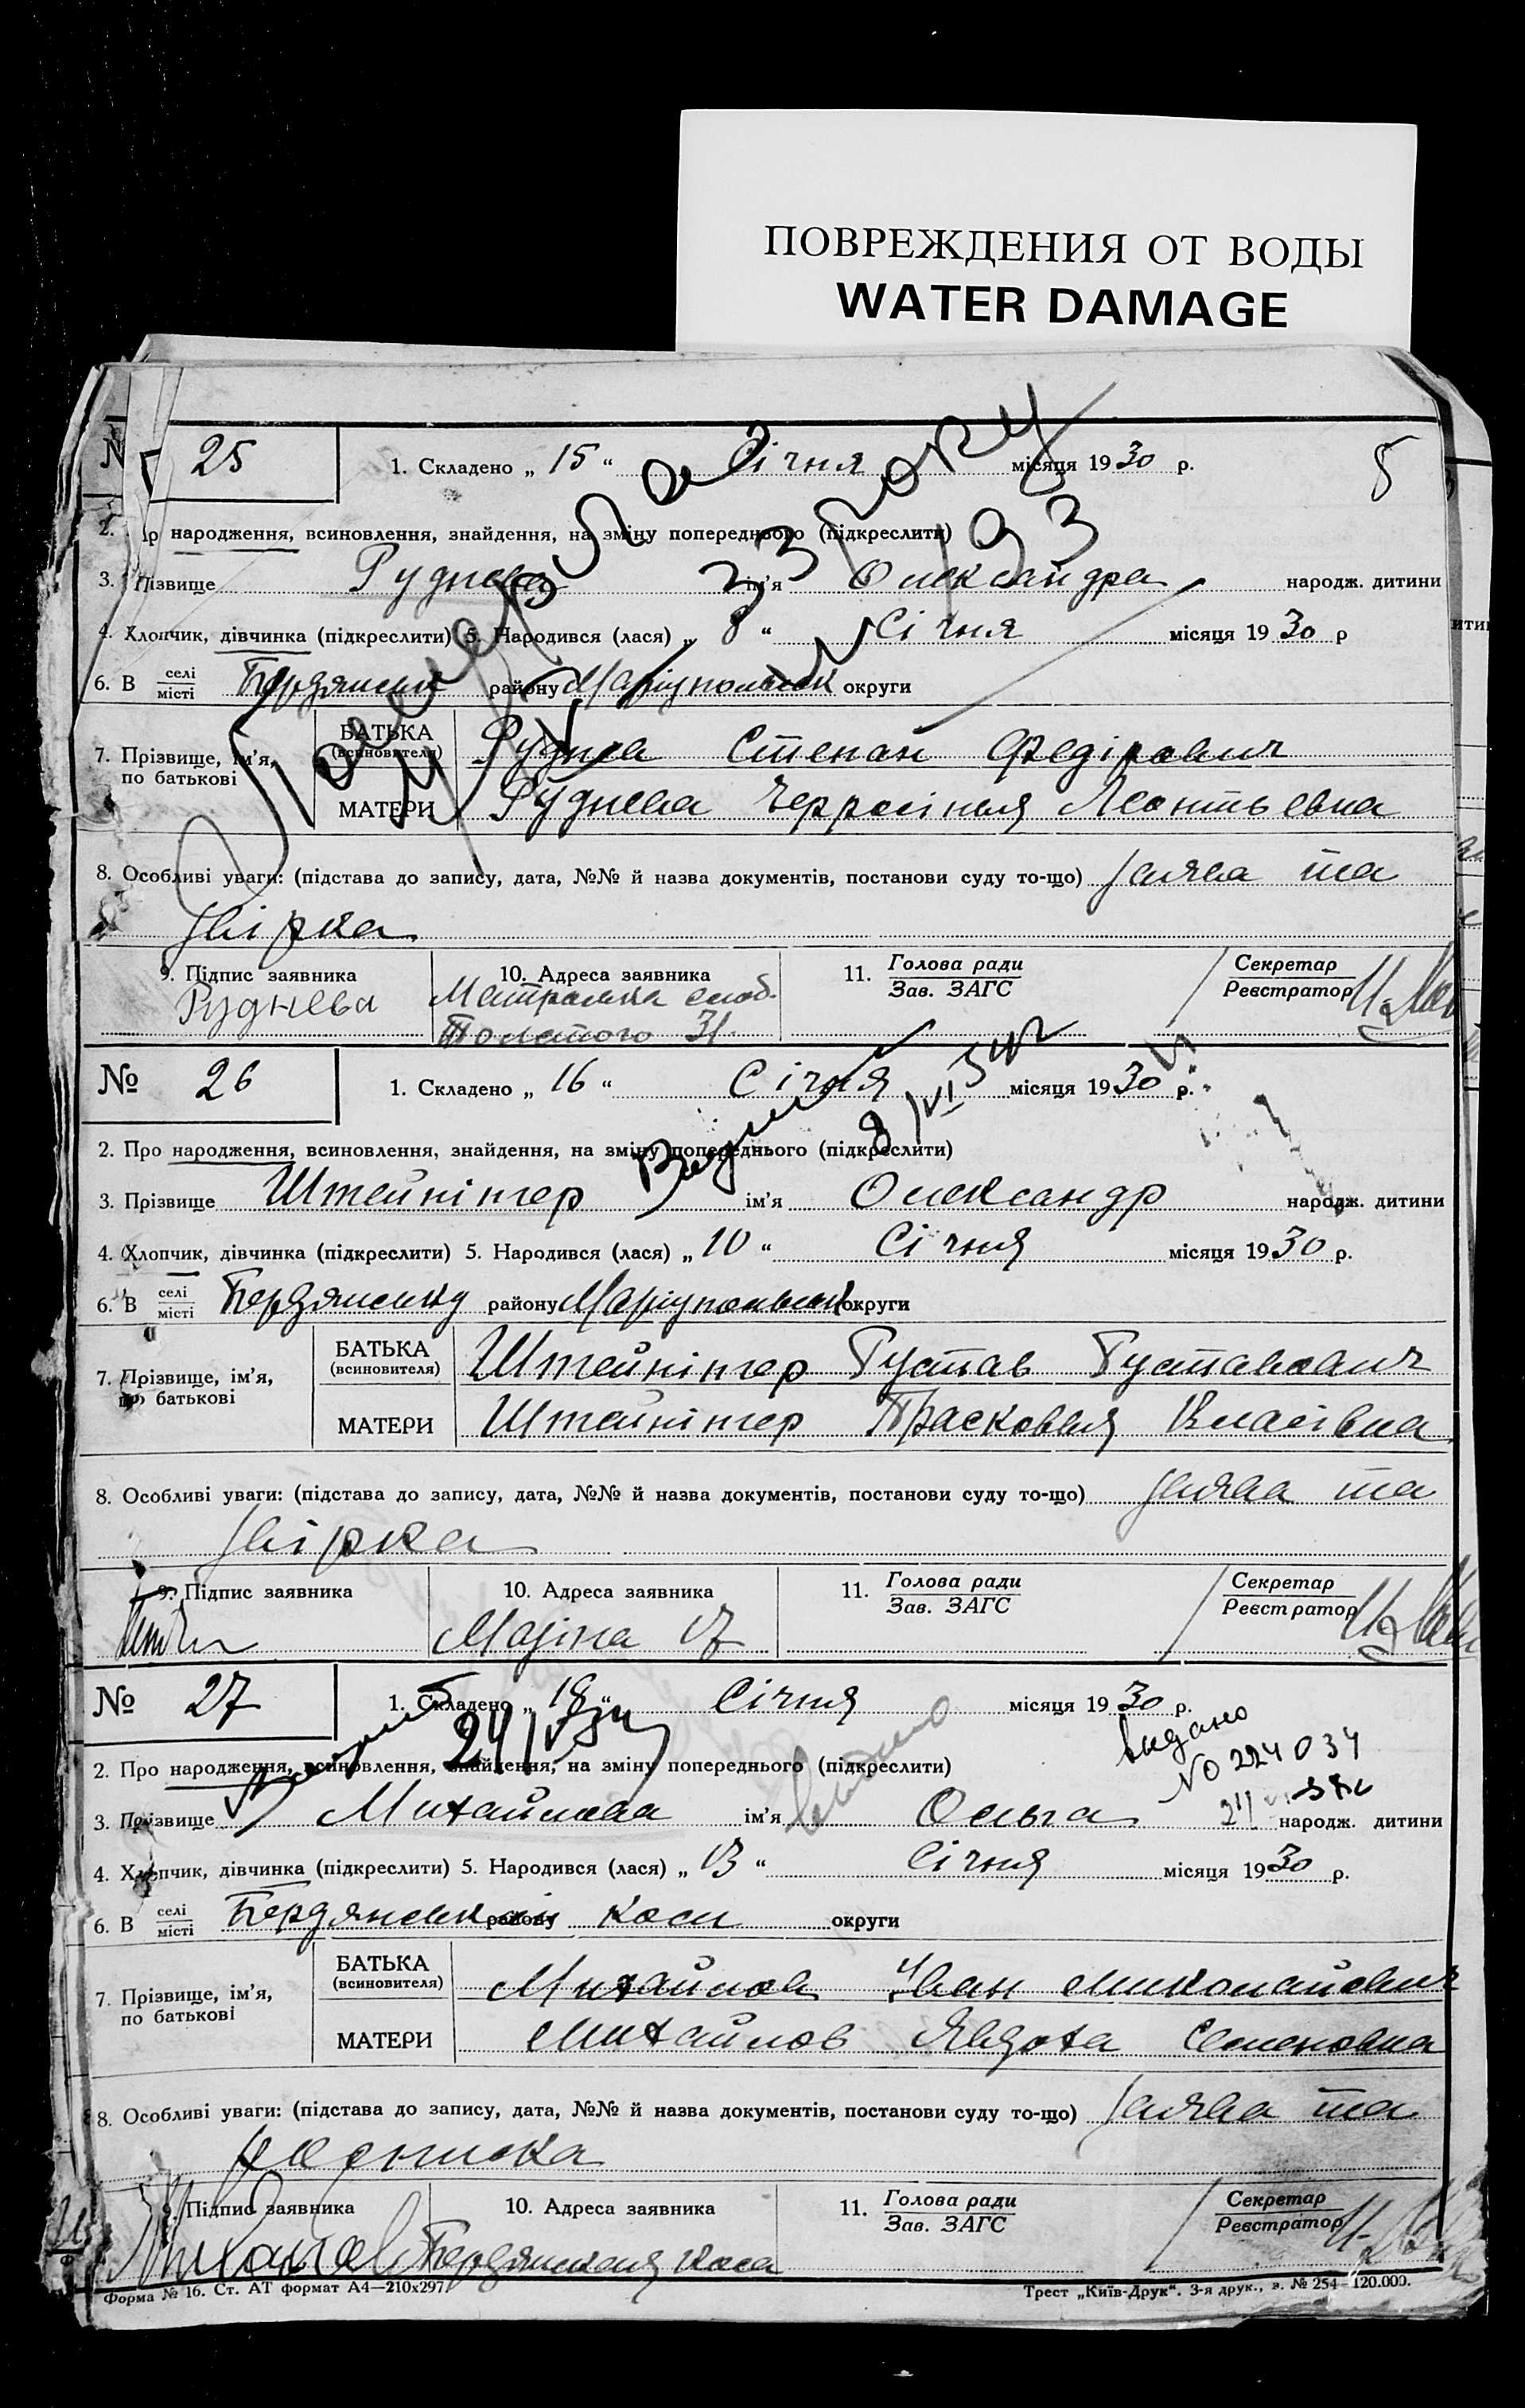 ПОВРЕЖДЕНИЯ ОТ ВОДЫ
WATER DAMAGE
25
1. Складено „ 15 “ Січня місяця 1930 р.
народження, всиновлення, знайдення, на зміну попереднього (підкреслити)
3. Прізвище Руднева ім’я Олександра народж. дитини
4. Хлопчик, дівчинка (підкреслити) 5. Народився (лася) „ 8 “ Січня місяця 1930 р
6. В селі місті Бердянськ району Маріупольськ округи
7. Прізвище, ім’я, по батькові
БАТЬКА (всиновителя) Руднев Степан Федірович
МАТЕРИ Руднева Леонтьевна
8. Особливі уваги: (підстава до запису, дата, №№ й назва документів, постанови суду то-що) Заява та
звірка
9. Підпис заявника 10. Адреса заявника 11. Голова ради Зав. ЗАГС Секретар Реєстратор
Руднева слоб.
Толстого 31
№ 26 1. Складено „ 16 “ Січня місяця 1930 р.
2. Про народження, всиновлення, знайдення, на зміну попереднього (підкреслити)
3. Прізвище Штейнінгер ім’я Олександр народж. дитини
4. Хлопчик, дівчинка (підкреслити) 5. Народився (лася) „ 10 “ Січня місяця 1930 р.
6. В селі місті Бердянську району Маріупольськ округи
7. Прізвище, ім’я, по батькові
БАТЬКА (всиновителя) Штейнінгер Густав Густавович
МАТЕРИ Штейнінгер Прасковья Власівна
8. Особливі уваги: (підстава до запису, дата, №№ й назва документів, постанови суду то-що) Заява та
звірка
9. Підпис заявника 10. Адреса заявника 11. Голова ради Зав. ЗАГС Секретар Реєстратор
17
№ 27 1. Складено „ 18 “ Січня місяця 1930 р.
видано
№ 224034
2. Про народження, всиновлення, знайдення, на зміну попереднього (підкреслити)
3. Прізвище Михайлова ім’я Ольга народж. дитини
4. Хлопчик, дівчинка (підкреслити) 5. Народився (лася) „ 13 “ Січня місяця 1930 р.
6. В селі місті Бердянській району Коси округи
7. Прізвище, ім’я, по батькові
БАТЬКА (всиновителя) Михайлов Іван Миколайович
МАТЕРИ Михайлов Явдоха Семеновна
8. Особливі уваги: (підстава до запису, дата, №№ й назва документів, постанови суду то-що) Заява та
9. Підпис заявника 10. Адреса заявника 11. Голова ради Зав. ЗАГС Секретар Реєстратор
Бердянская Коса
Форма № 16. Ст. АТ формат А4—210х297
Трест „Київ-Друк“. 3-я друк., з. № 254—120.000.